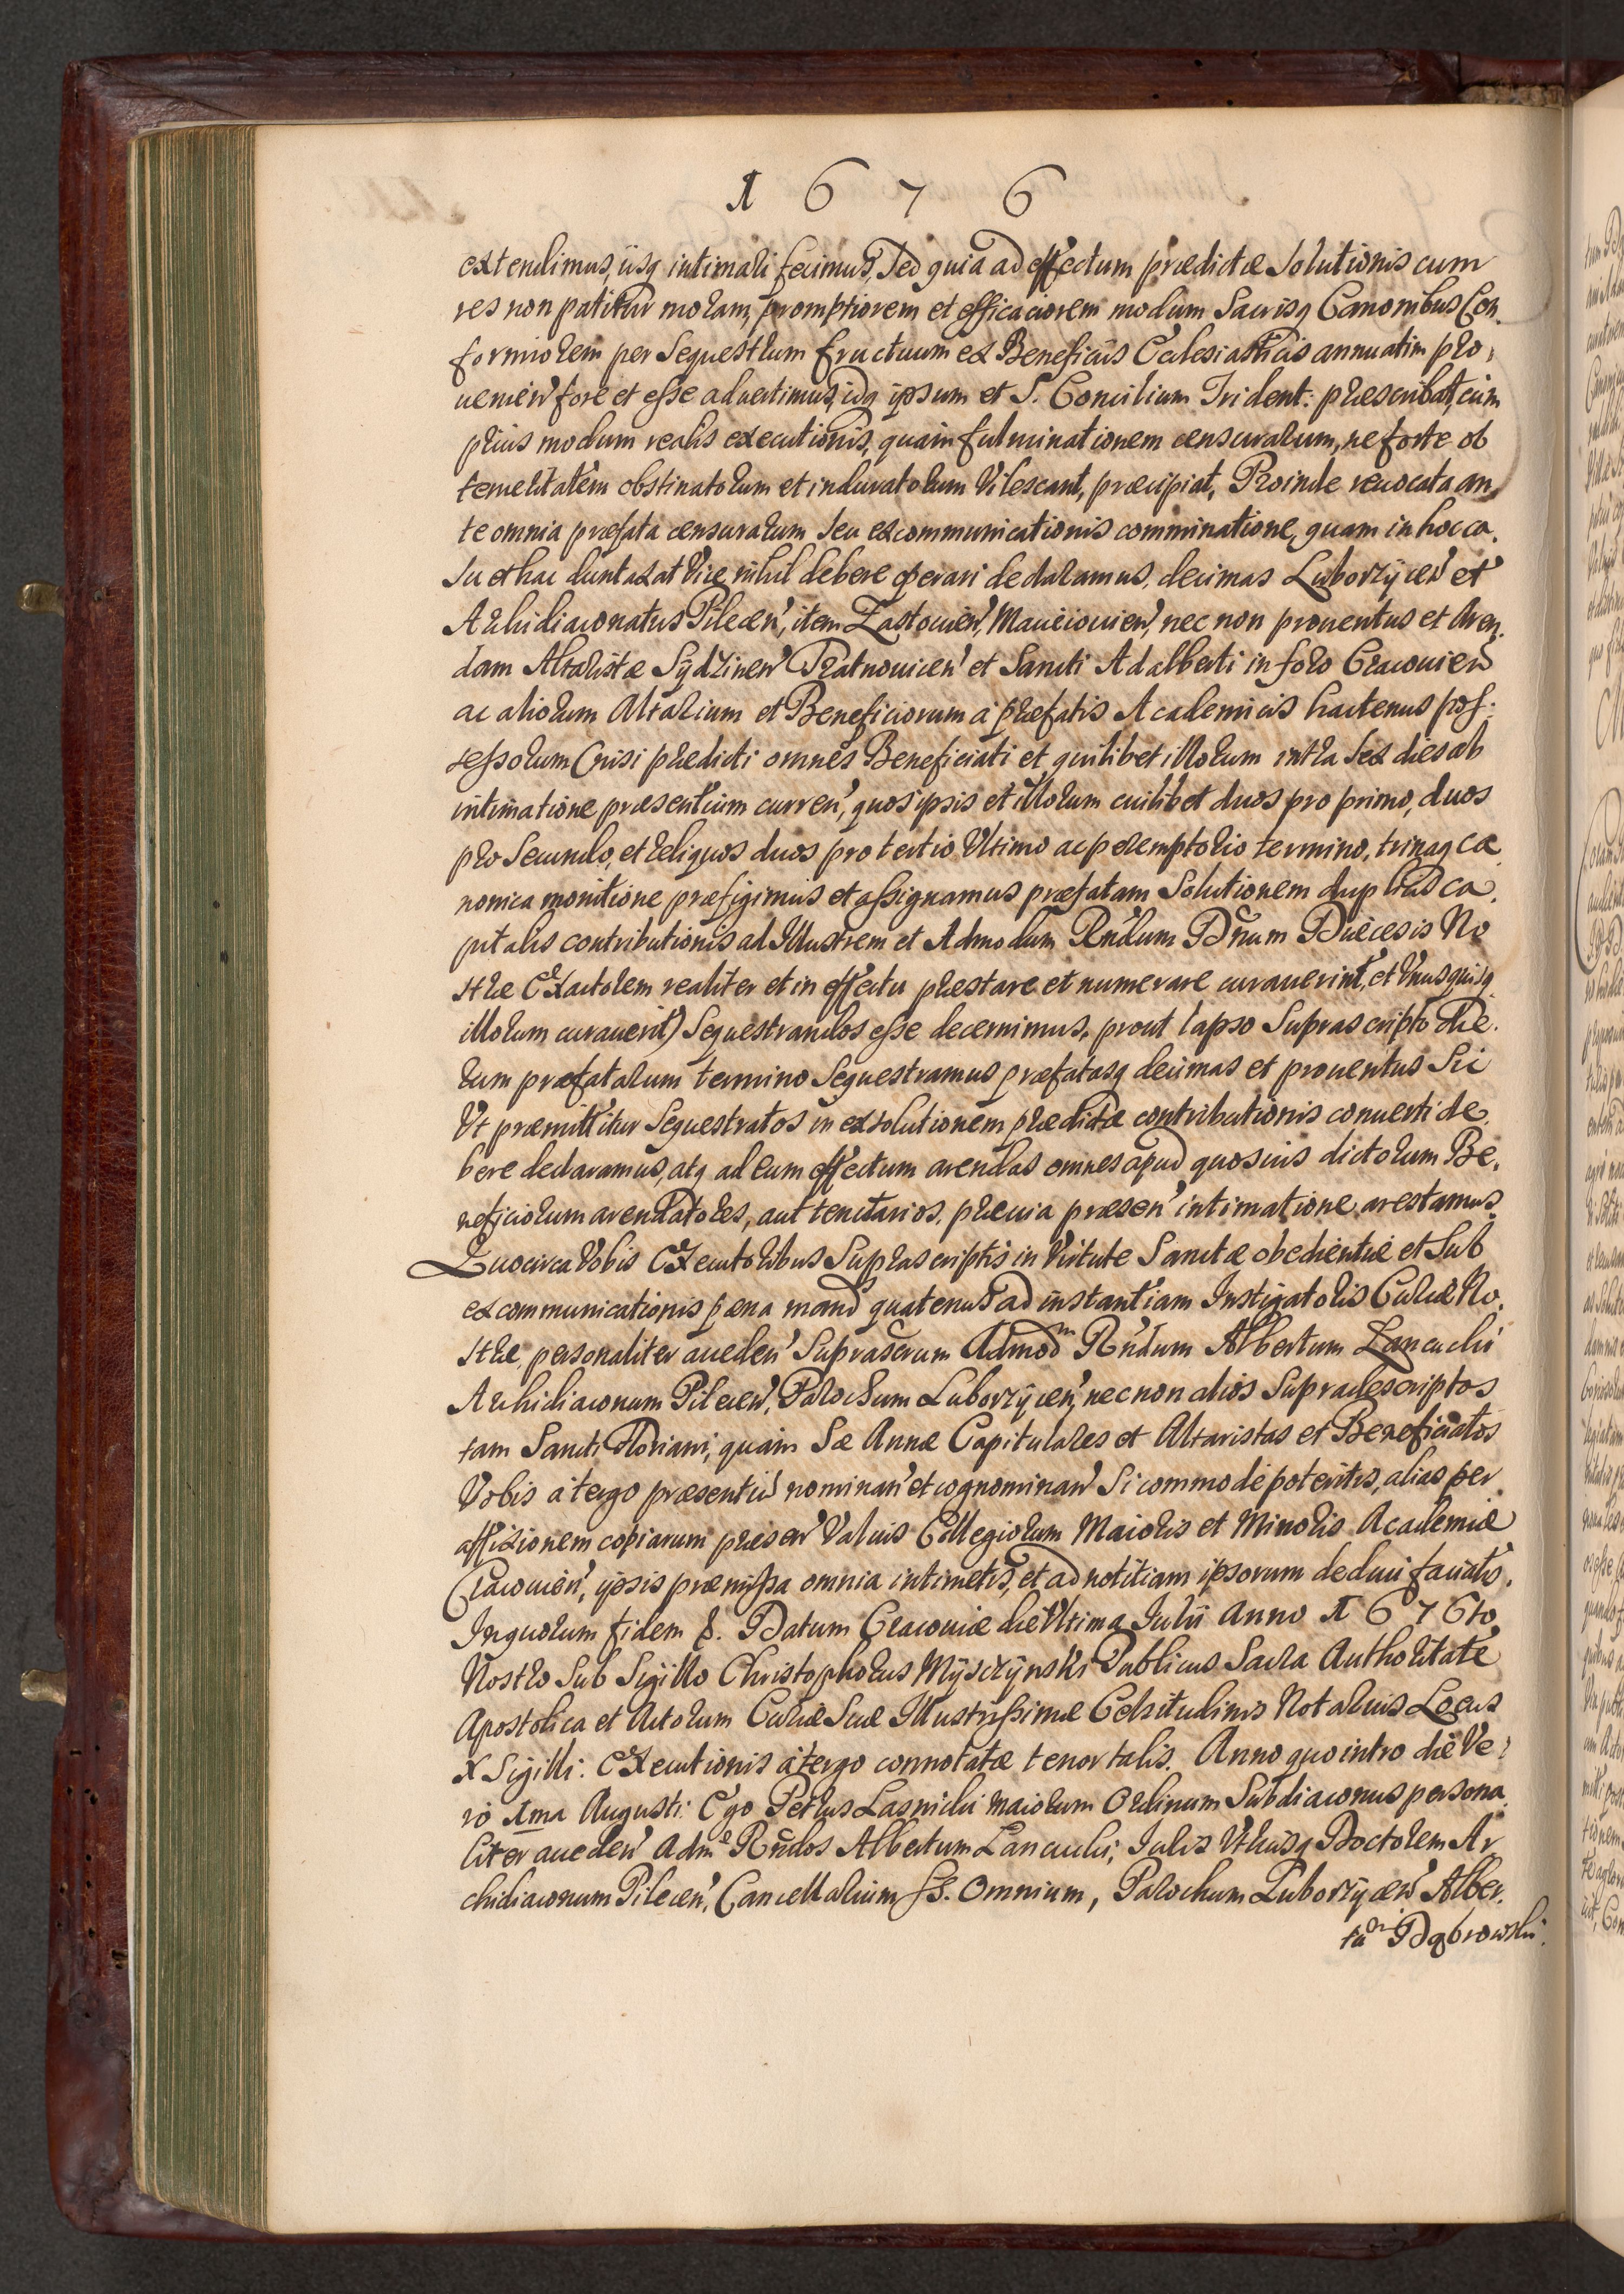 1676
extendimus, ijsq intimari fecimus, Sed quia ad effectum prædictæ Solutionis cum
res non patitur moram, promptiorem et efficaciorem modum Sacrisq Canonibus Con,
formiorem per Sequestrum fructuum ex Beneficijs Ecclesiasticis annuatim pro,
uenien fore et esse aduertimus, idq ipsum et S. Concilium Trident: præscribat, cum
prius modum realis executionis, quam fulminationem censurarum, ne forte ob
temeritatem obstinatorum et induratorum Vilescant, præcipiat, Proinde reuocata an,
te omnia præfata censurarum seu excommunicationis comminatione, quam in hoc ca,
su et hac duntaxat Vice nihil debere operari declaramus, decimas Luborzÿcen et
Archidiaconatus Pilecen, item Zastouien, Macieiouien, nec non prouentus et Aren,
dam Altaristæ Sÿdzinen Pratnouicen et Sancti Adalberti in foro Cracouien
ac aliorum Altarium et Beneficiorum à præfatis Academicis hactenus pos:
sessorum (nisi prædicti omnes Beneficiati et quilibet illorum intra Sex dies ab
intimatione præsentium curren, quos ipsis et illorum cuilibet duos pro primo, duos
pro Secundo, et reliquos duos pro tertio Vltimo ac peremptorio termino, trinaq ca
nonica monitione præfigimus et assignamus præfatam Solutionem duplicis ca,
pitalis contributionis ad Illustrem et Admodum Rndum Dnum Diæcesis No
stræ Exactorem realiter et in effectu præstare et numerare curauerint, et Vnusquisq
illorum curauerit) Sequestrandos esse decernimus, prout lapso Suprascripto die,
rum præfatarum termino Sequestramus præfatasq decimas et prouentus Sic
Vt præmittitur Sequestratos in exsolutionem prædictæ contributionis conuerti de,
bere declaramus, atq ad eum effectum arendas omnes apud quosuis dictorum Be,
neficiorum arendatores, aut tenutarios, præuia præsen intimatione arestamus.
Quocirca Vobis Executoribus Suprascriptis in Virtute Sanctæ obedientiæ et Sub
excommunicationis pæna mand quatenus ad instantiam Instigatoris Curiæ No,
stræ, personaliter acceden Suprascrum Admod Rndum Albertum Lancucki
Archidiaconum Pilecen, Parochum Luborzÿcen, nec non alios Supradescriptos
tam Sancti Floriani, quam Sæ Annæ Capitulares et Altaristas et Beneficiatos
Vobis à tergo præsentiu nominan et cognominan Si commodè poteritis, alias per
affixionem copiarum præsen Valuis Collegiorum Maioris et Minoris Academiæ
Cracouien, ipsis præmissa omnia intimetis, et ad notitiam ipsorum deduci faciatis.
In quorum fidem &. Datum Cracouiæ die Vltima Julij Anno 1676to
Nostro Sub Sigillo Christophorus Mÿsczÿnski Publicus Sacra Authoritate
Apostolica et Actorum Curiæ Suæ Illustrissimæ Celsitudinis Notarius Locus
X Sigilli: Executionis à tergo connotatæ tenor talis. Anno quo intro die Ve:
ro 1ma Augusti: Ego Petrus Lasnicki Maiorum Ordinum Subdiaconus persona,
liter acceden Adm Rndos Albertum Lancucki, Iuris Vtriusq Doctorem Ar
chidiaconum Pilecen, Cancellarium SS. Omnium, Parochum Luborzÿcen Alber,
tu Dąbrowski.